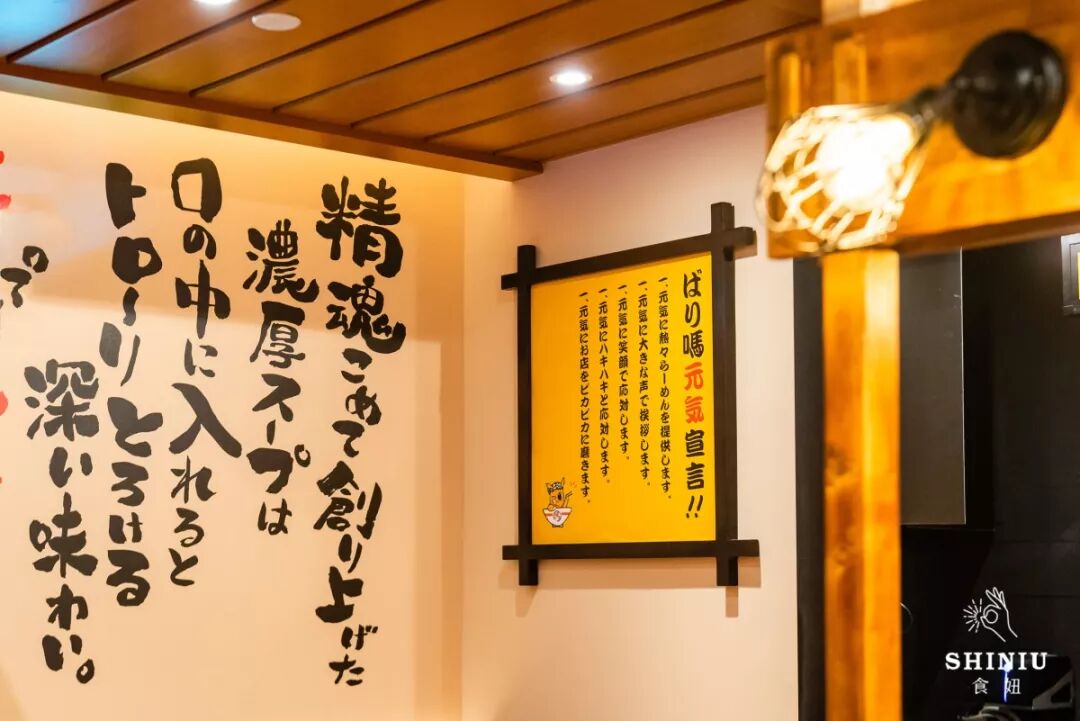 精魂こめて創り上げた
濃厚スープは
口の中に入れると
トローリとろける
深い味わい。
ばり嗎元気宣言!!
一、元気に熱々らーめんを提供します。
一、元気に大きな声で挨拶します。
一、元気に笑顔で応対します。
一、元気にハキハキと応対します。
一、元気にお店をピカピカに磨きます。
SHINIU
食妞